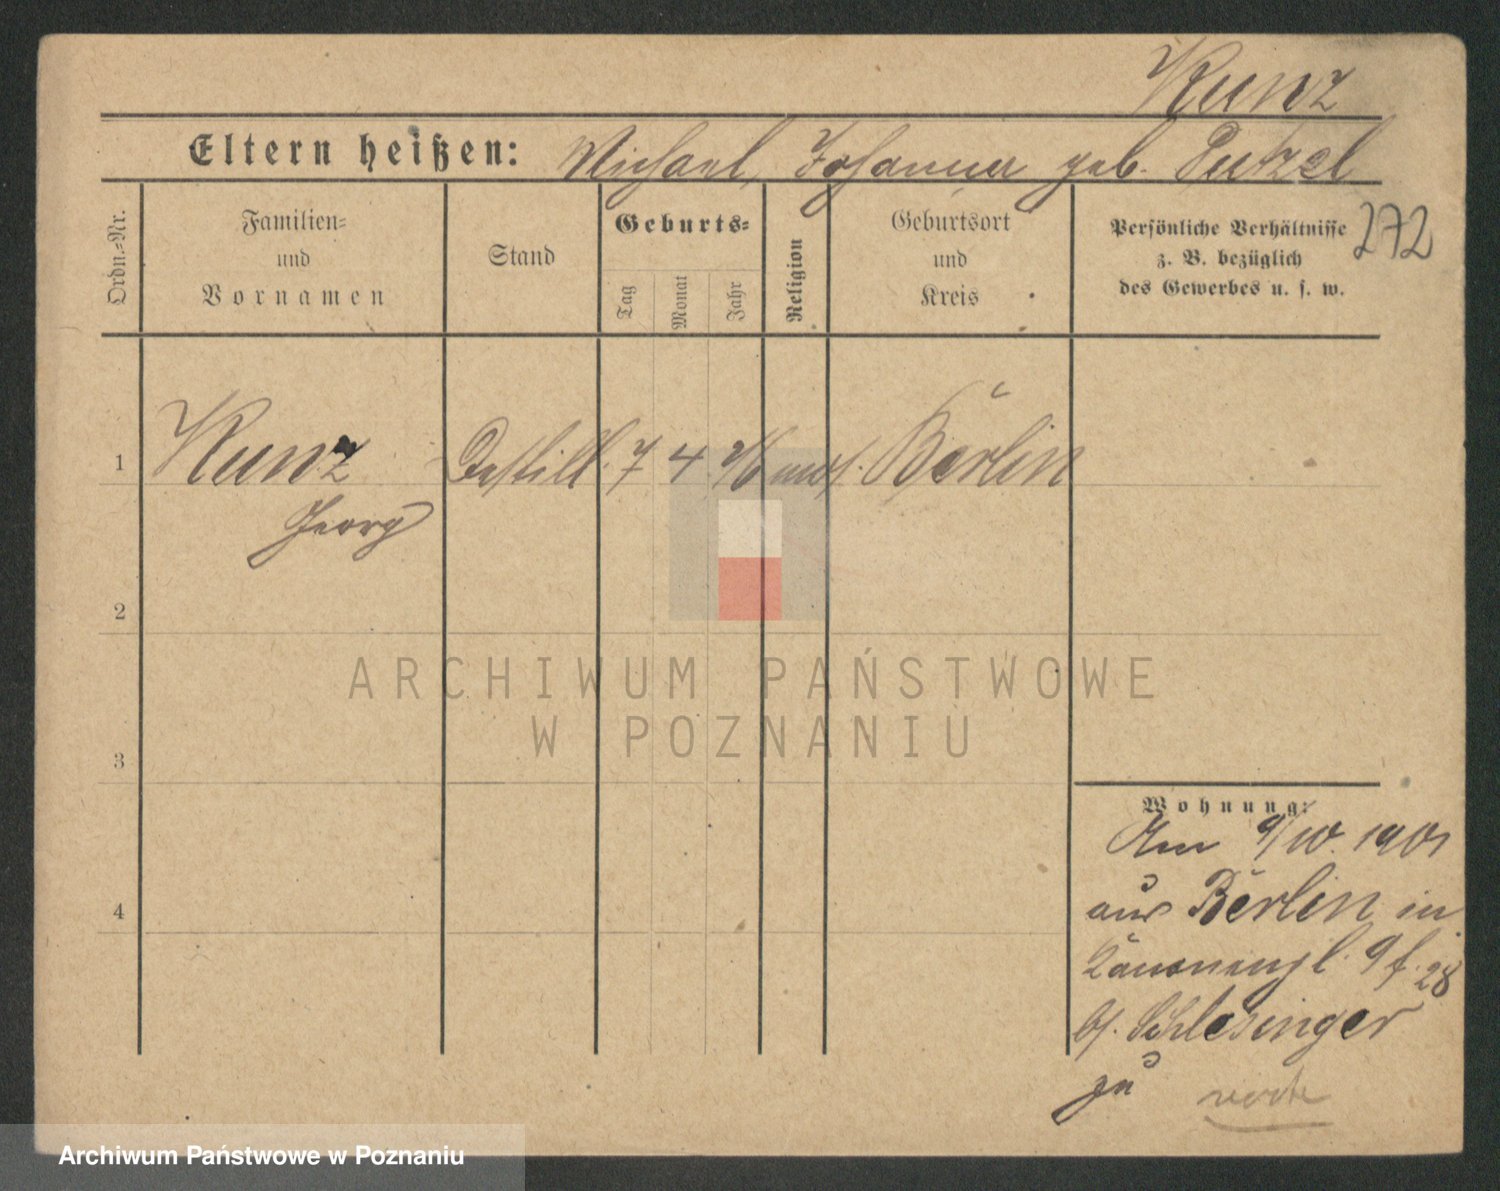 Kunz
Eltern heißen: Michael, Johanna geb. Putzel
272
Ordn.-Nr.
Familien-
und
Vornamen
Stand
Geburts-
Tag
Monat
Jahr
Religion
Geburtsort
und
Kreis
Persönliche Verhältnisse
z. B. bezüglich
des Gewerbes u. s. w.
1
Kunz
Georg
Destill. 7 4 76 mos. Berlin
2
ARCHIWUM PAŃSTWOWE
W POZNANIU
3
Wohnung:
Am 9/10. 1901
aus Berlin in
28
4
b/. Schlesinger
zu
Archiwum Państwowe w Poznaniu